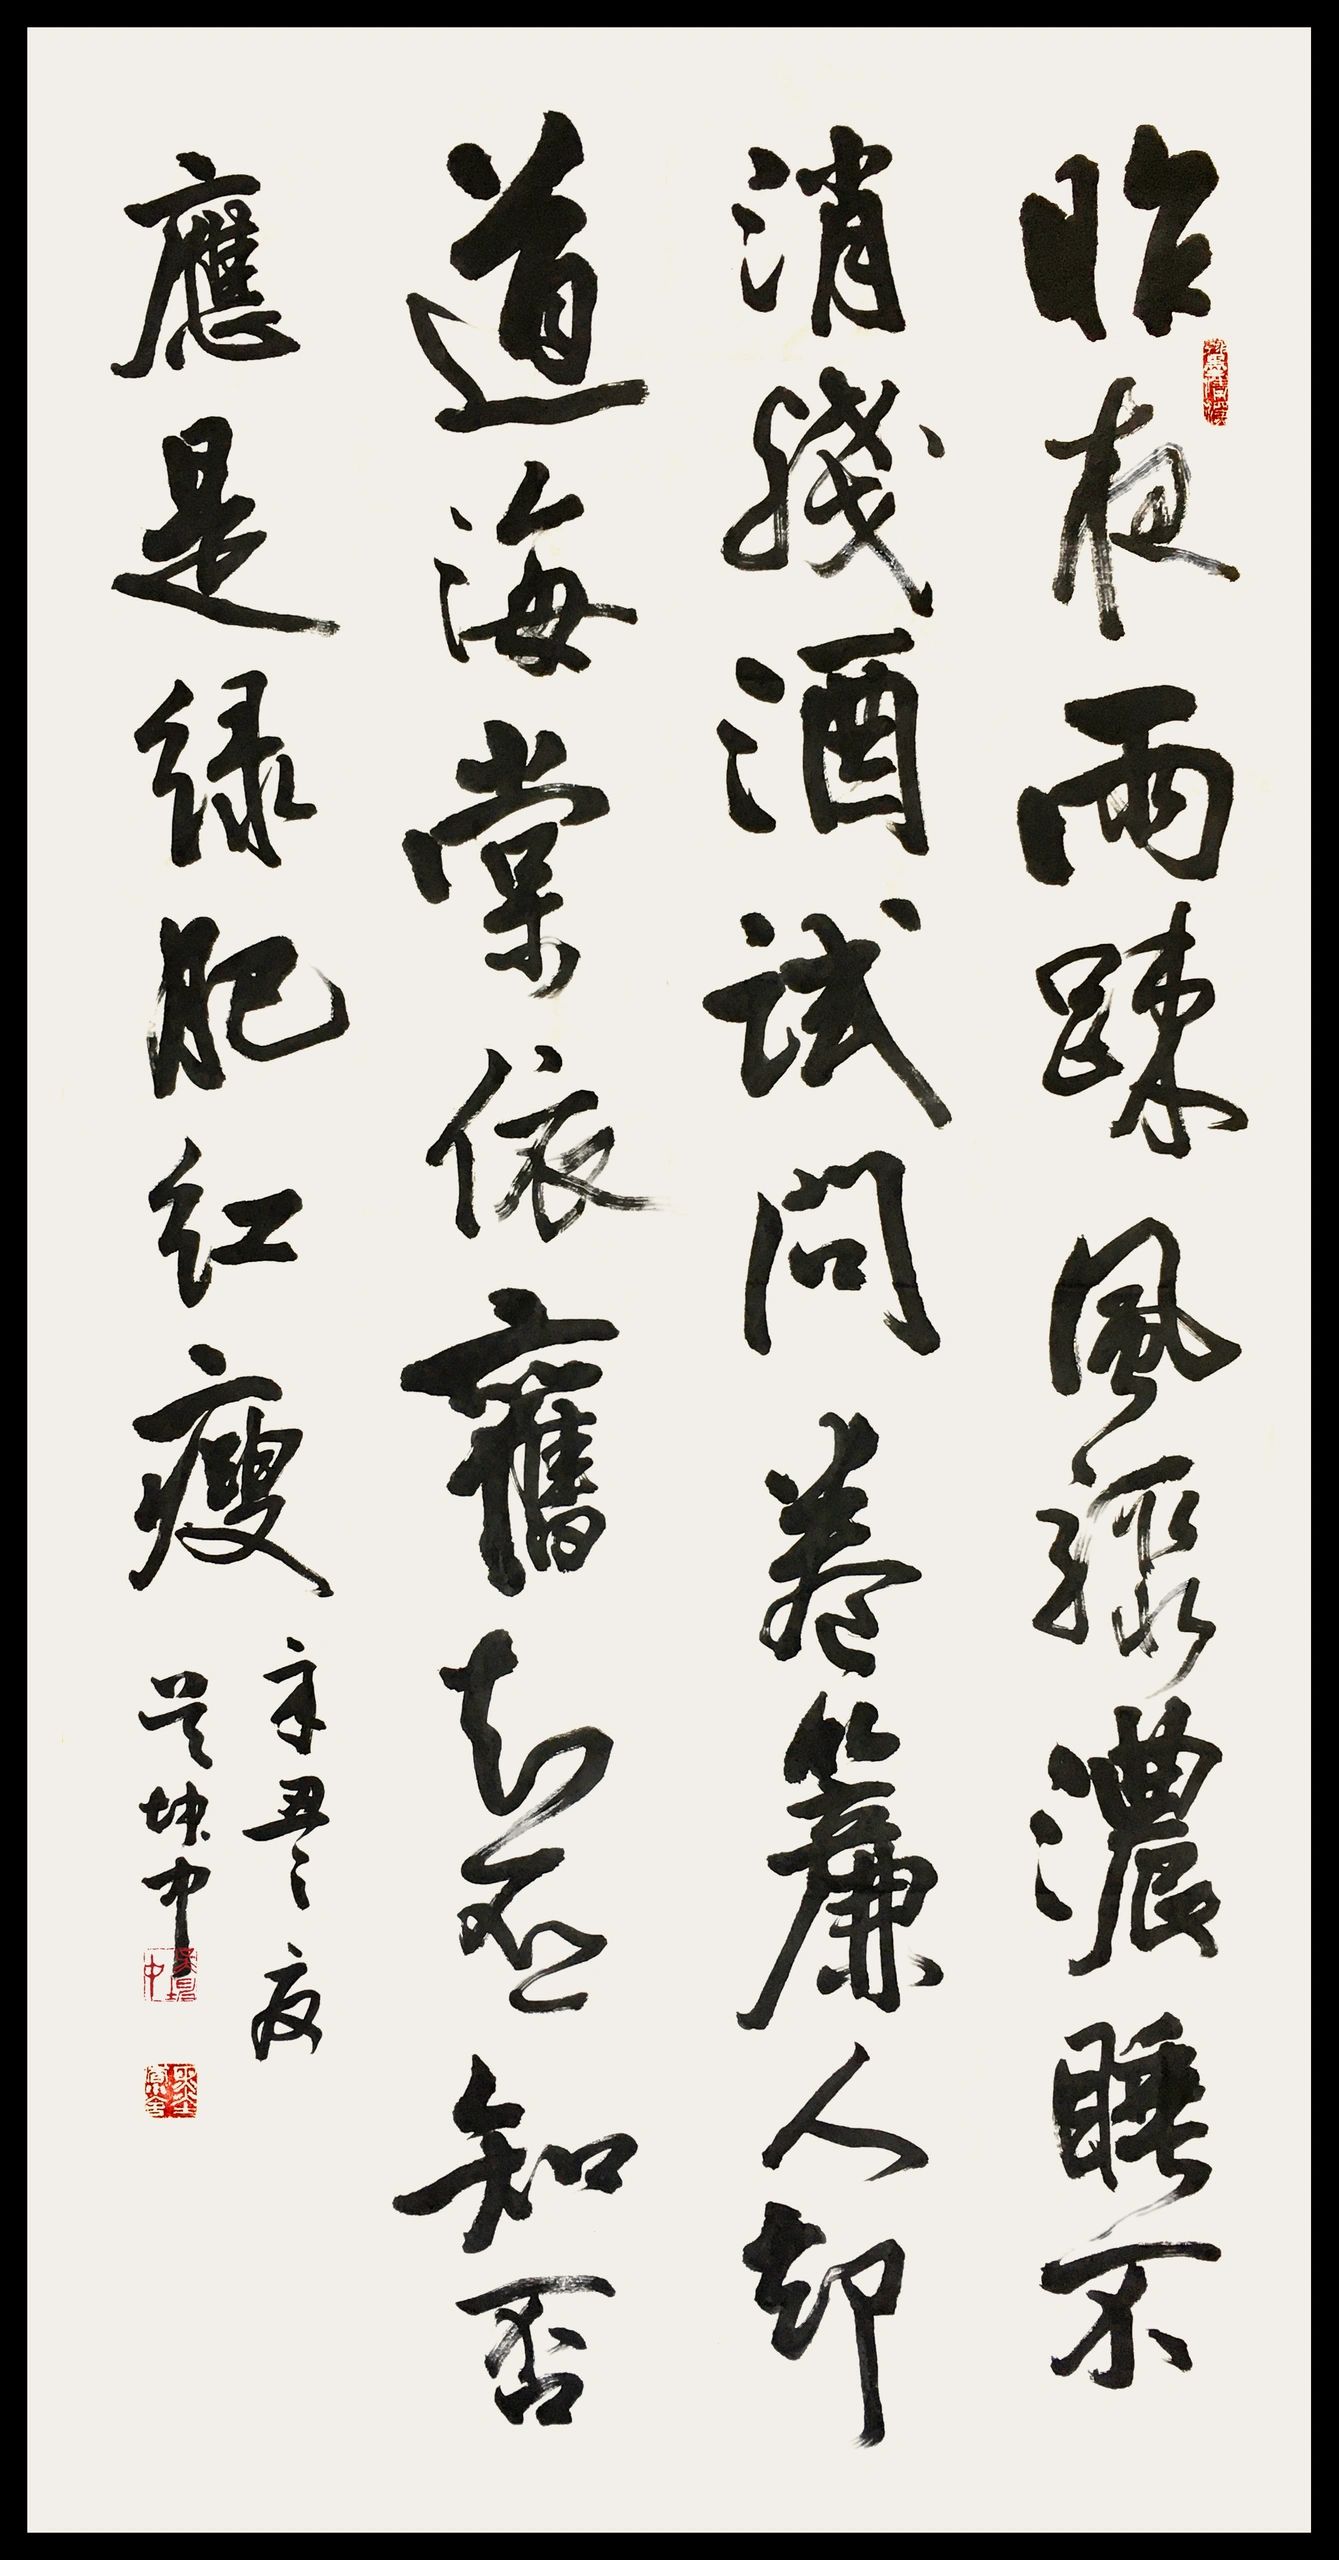 昨夜雨疎風驟濃睡不
消殘酒試問卷簾人却
道海棠依舊知否知否
應是绿肥红瘦
辛丑之夜
吴坤中